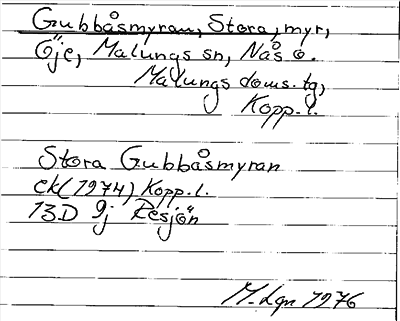 Gubbåsmyran, Stora, myr,
Öje, Malungs sn, Nås o.
Malungs doms. tg,
Kopp. l.
Stora Gubbåsmyran
ek (1974) Kopp. l.
13D 9j Resjön
M. Lgn 1976